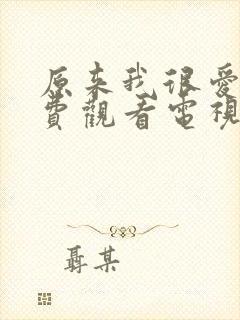 原来我很爱
費觀看電視
聶某